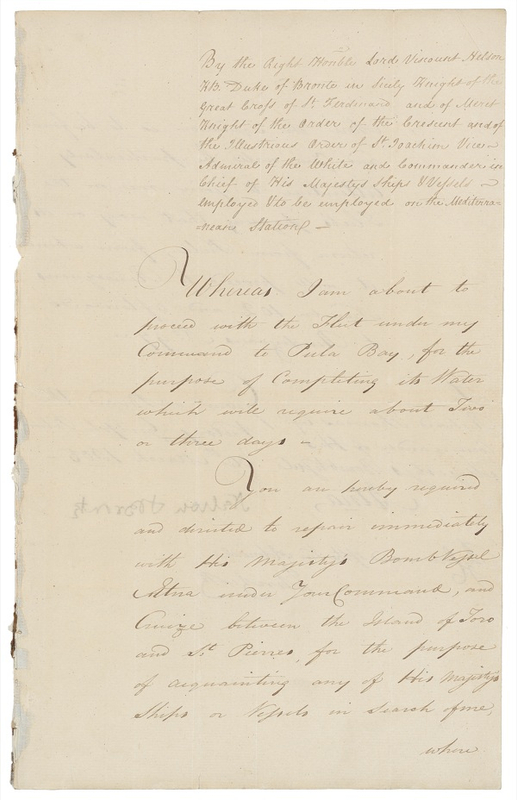 By the Right Honble. Lord Viscount Nelson
KB. Duke of Bronte in Sicily Knight of the
Great Cross of St. Ferdinand and of Merit
Knight of the Order of the Crescent and of
the Illustrious Order of St. Joachim Vice—
Admiral of the White and Commander in
Chief of His Majestys Ships & Vessels —
employed & to be employed on the Mediterra-
nean Station —
Whereas I am about to
proceed with the Fleet under my
Command to Pula Bay, for the
purpose of Completing its Water
which will require about Two
or three days —
You are hereby required
and directed to repair immediately
with His Majesty's Bomb Vessel
Ætna under Your Command, and
Cruize between the Island of Toro
and St. Pierres, for the purpose
of acquainting any of His Majestys
Ships or Vessels in search of me,
where
Nelson & Bronte